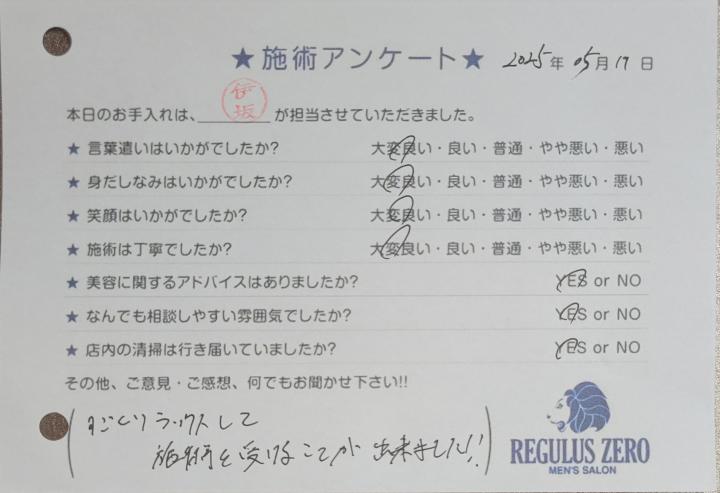 ★施術アンケート★ 2025年 05月 17日
本日のお手入れは、伊坂が担当させていただきました。
★ 言葉遣いはいかがでしたか? 大変良い・良い・普通・やや悪い・悪い
★ 身だしなみはいかがでしたか? 大変良い・良い・普通・やや悪い・悪い
★ 笑顔はいかがでしたか? 大変良い・良い・普通・やや悪い・悪い
★ 施術は丁寧でしたか? 大変良い・良い・普通・やや悪い・悪い
★ 美容に関するアドバイスはありましたか? YES or NO
★ なんでも相談しやすい雰囲気でしたか? YES or NO
★ 店内の清掃は行き届いていましたか? YES or NO
その他、ご意見・ご感想、何でもお聞かせ下さい!!
すごくリラックスして
施術を受けることが出来ました!!
REGULUS ZERO
MEN'S SALON